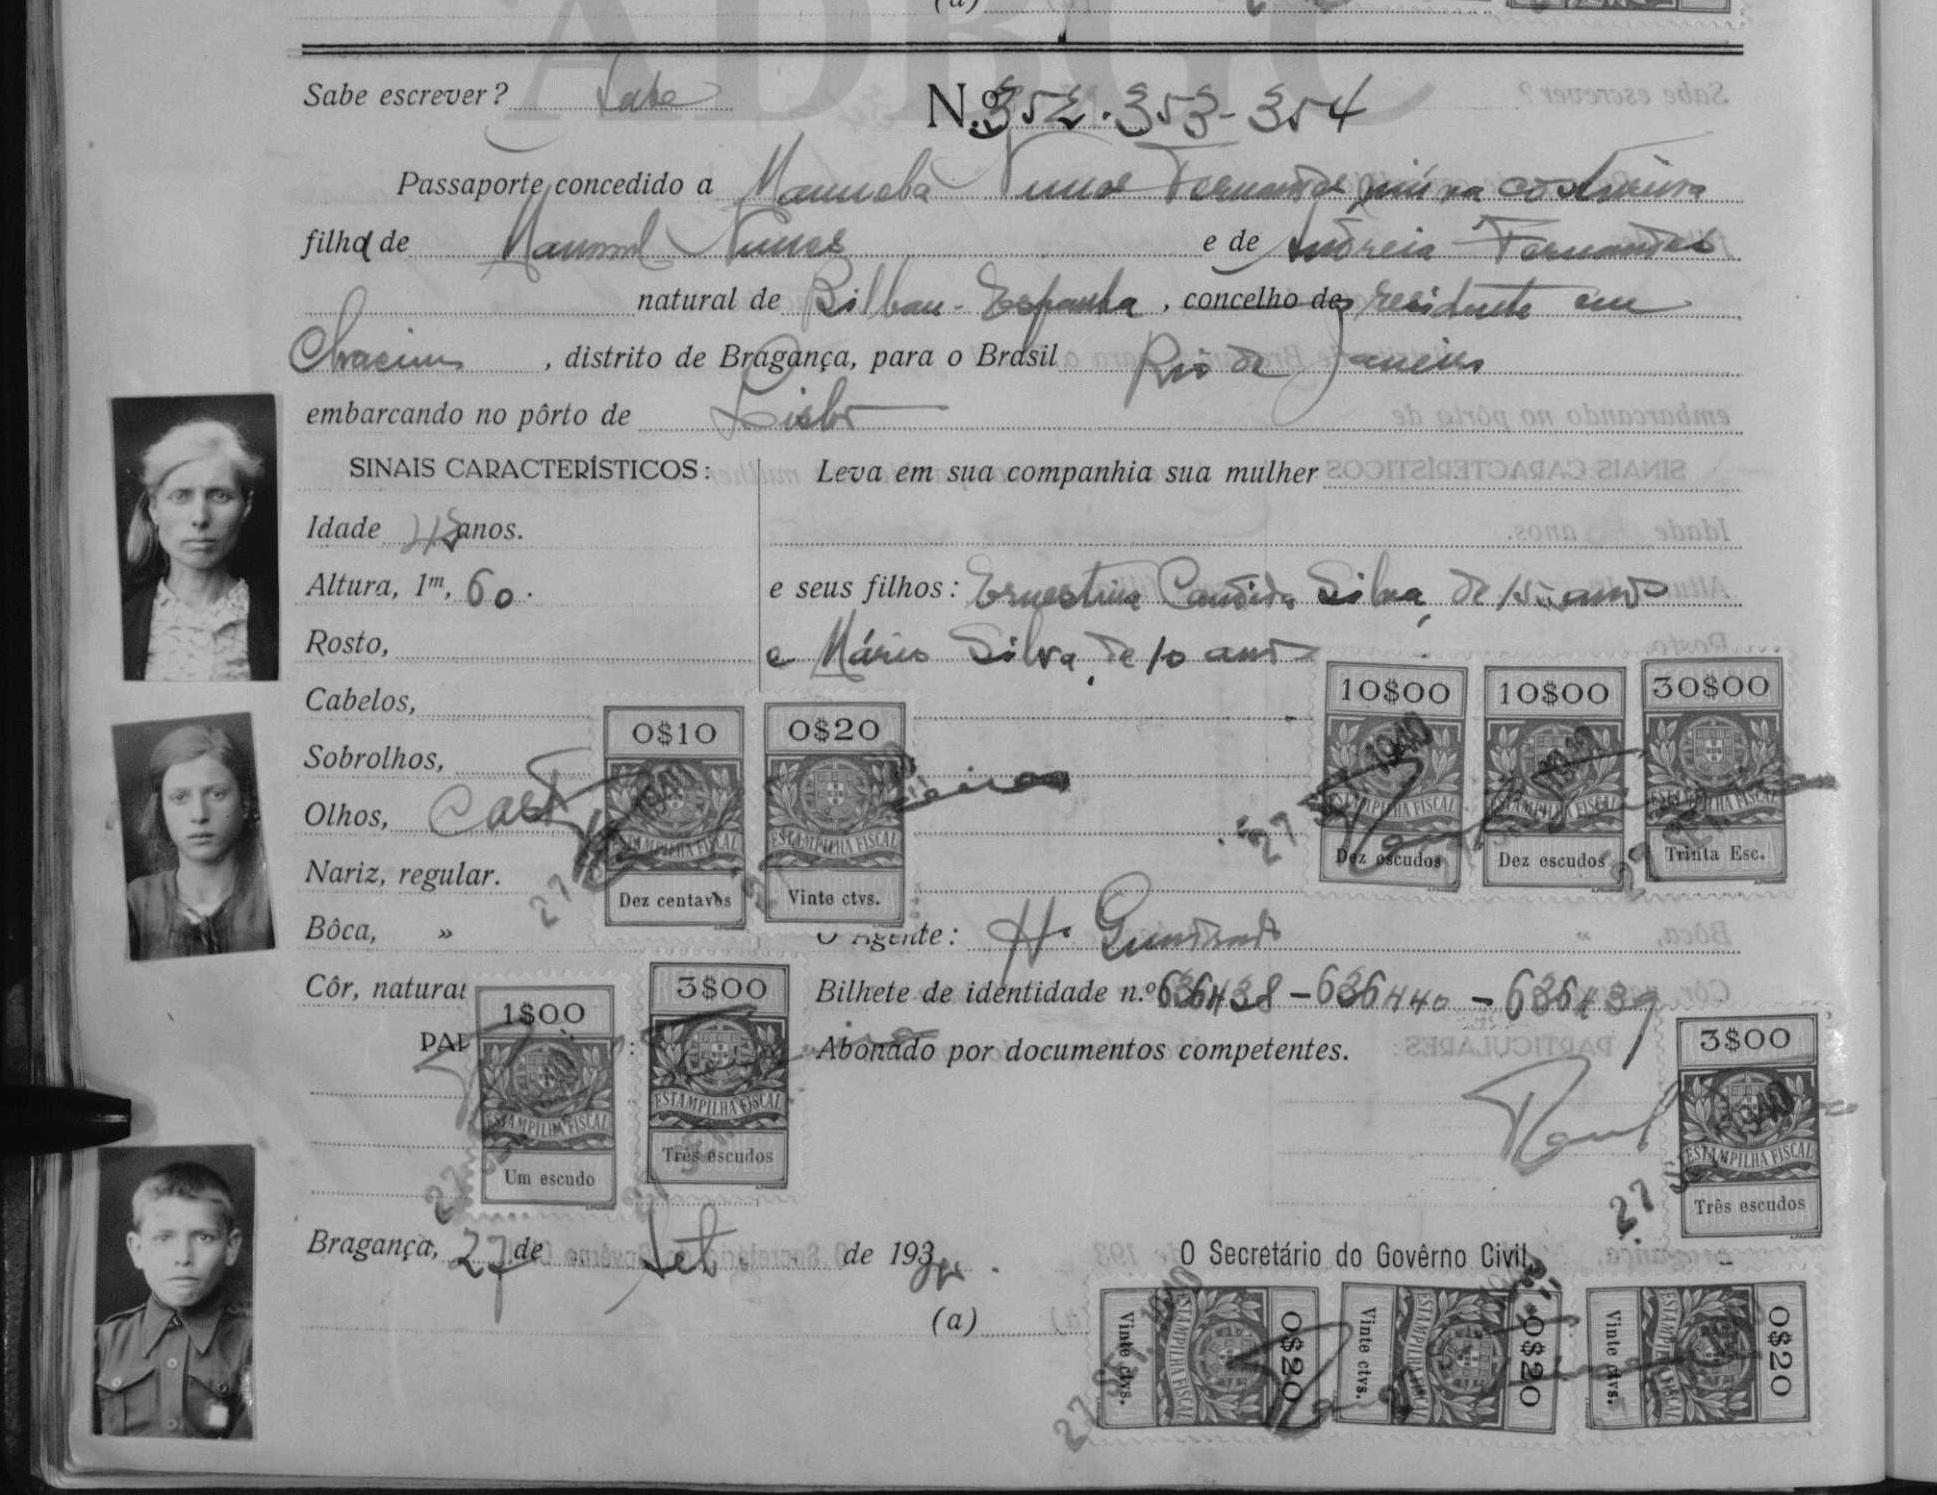 Sabe escrever? Sabe
N.º 352-353-354
Passaporte concedido a Manuela Nunes Fernandes viúva costureira
filha de Manuel Nunes e de Andreia Fernandes
natural de Bilbau-Espanha, concelho de residente em
Chacim, distrito de Bragança, para o Brasil Rio de Janeiro
embarcando no pôrto de Lisboa
SINAIS CARACTERÍSTICOS:
Idade anos.
Altura, 1m, 60.
Rosto,
Cabelos,
Sobrolhos,
Olhos, Cast
Nariz, regular.
Bôca, »
Côr, natural
Leva em sua companhia sua mulher
e seus filhos: Ernestina Candida Silva, de 15 anos
e Mário Silva, de 10 anos
0$10
ESTAMPILHA FISCAL
Dez centavos
0$20
ESTAMPILHA FISCAL
Vinte ctvs.
10$00
ESTAMPILHA FISCAL
Dez escudos
10$00
ESTAMPILHA FISCAL
Dez escudos
30$00
ESTAMPILHA FISCAL
Trinta Esc.
O Agente:
Bilhete de identidade n.º 636438-636440-636439
Abonado por documentos competentes.
1$00
ESTAMPILHA FISCAL
Um escudo
3$00
ESTAMPILHA FISCAL
Três escudos
3$00
ESTAMPILHA FISCAL
Três escudos
27 SET. 1940
Bragança, 27 de Set de 193
O Secretário do Govêrno Civil,
(a)
0$20
ESTAMPILHA FISCAL
Vinte ctvs.
0$20
ESTAMPILHA FISCAL
Vinte ctvs.
0$20
ESTAMPILHA FISCAL
Vinte ctvs.